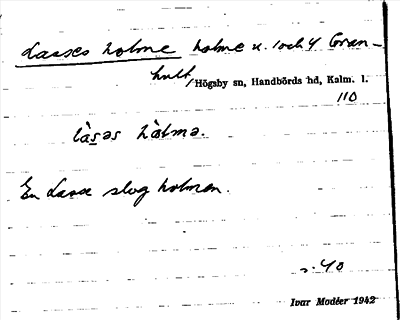 Lasses holme holme u. 1 och 4 Gran-
hult, Högsby sn, Handbörds hd, Kalm. l.
110
làsəs hòlmə.
En Lasse slog holmen.
s. 40
Ivar Modéer 1942